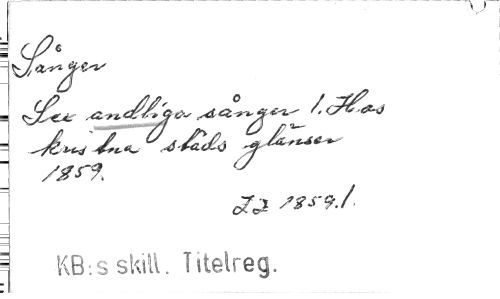 Sånger
Sex andliga sånger 1. Hos
kristna städs glänser
1859.
ZZ 1859.1.
KB:s skill. Titelreg.